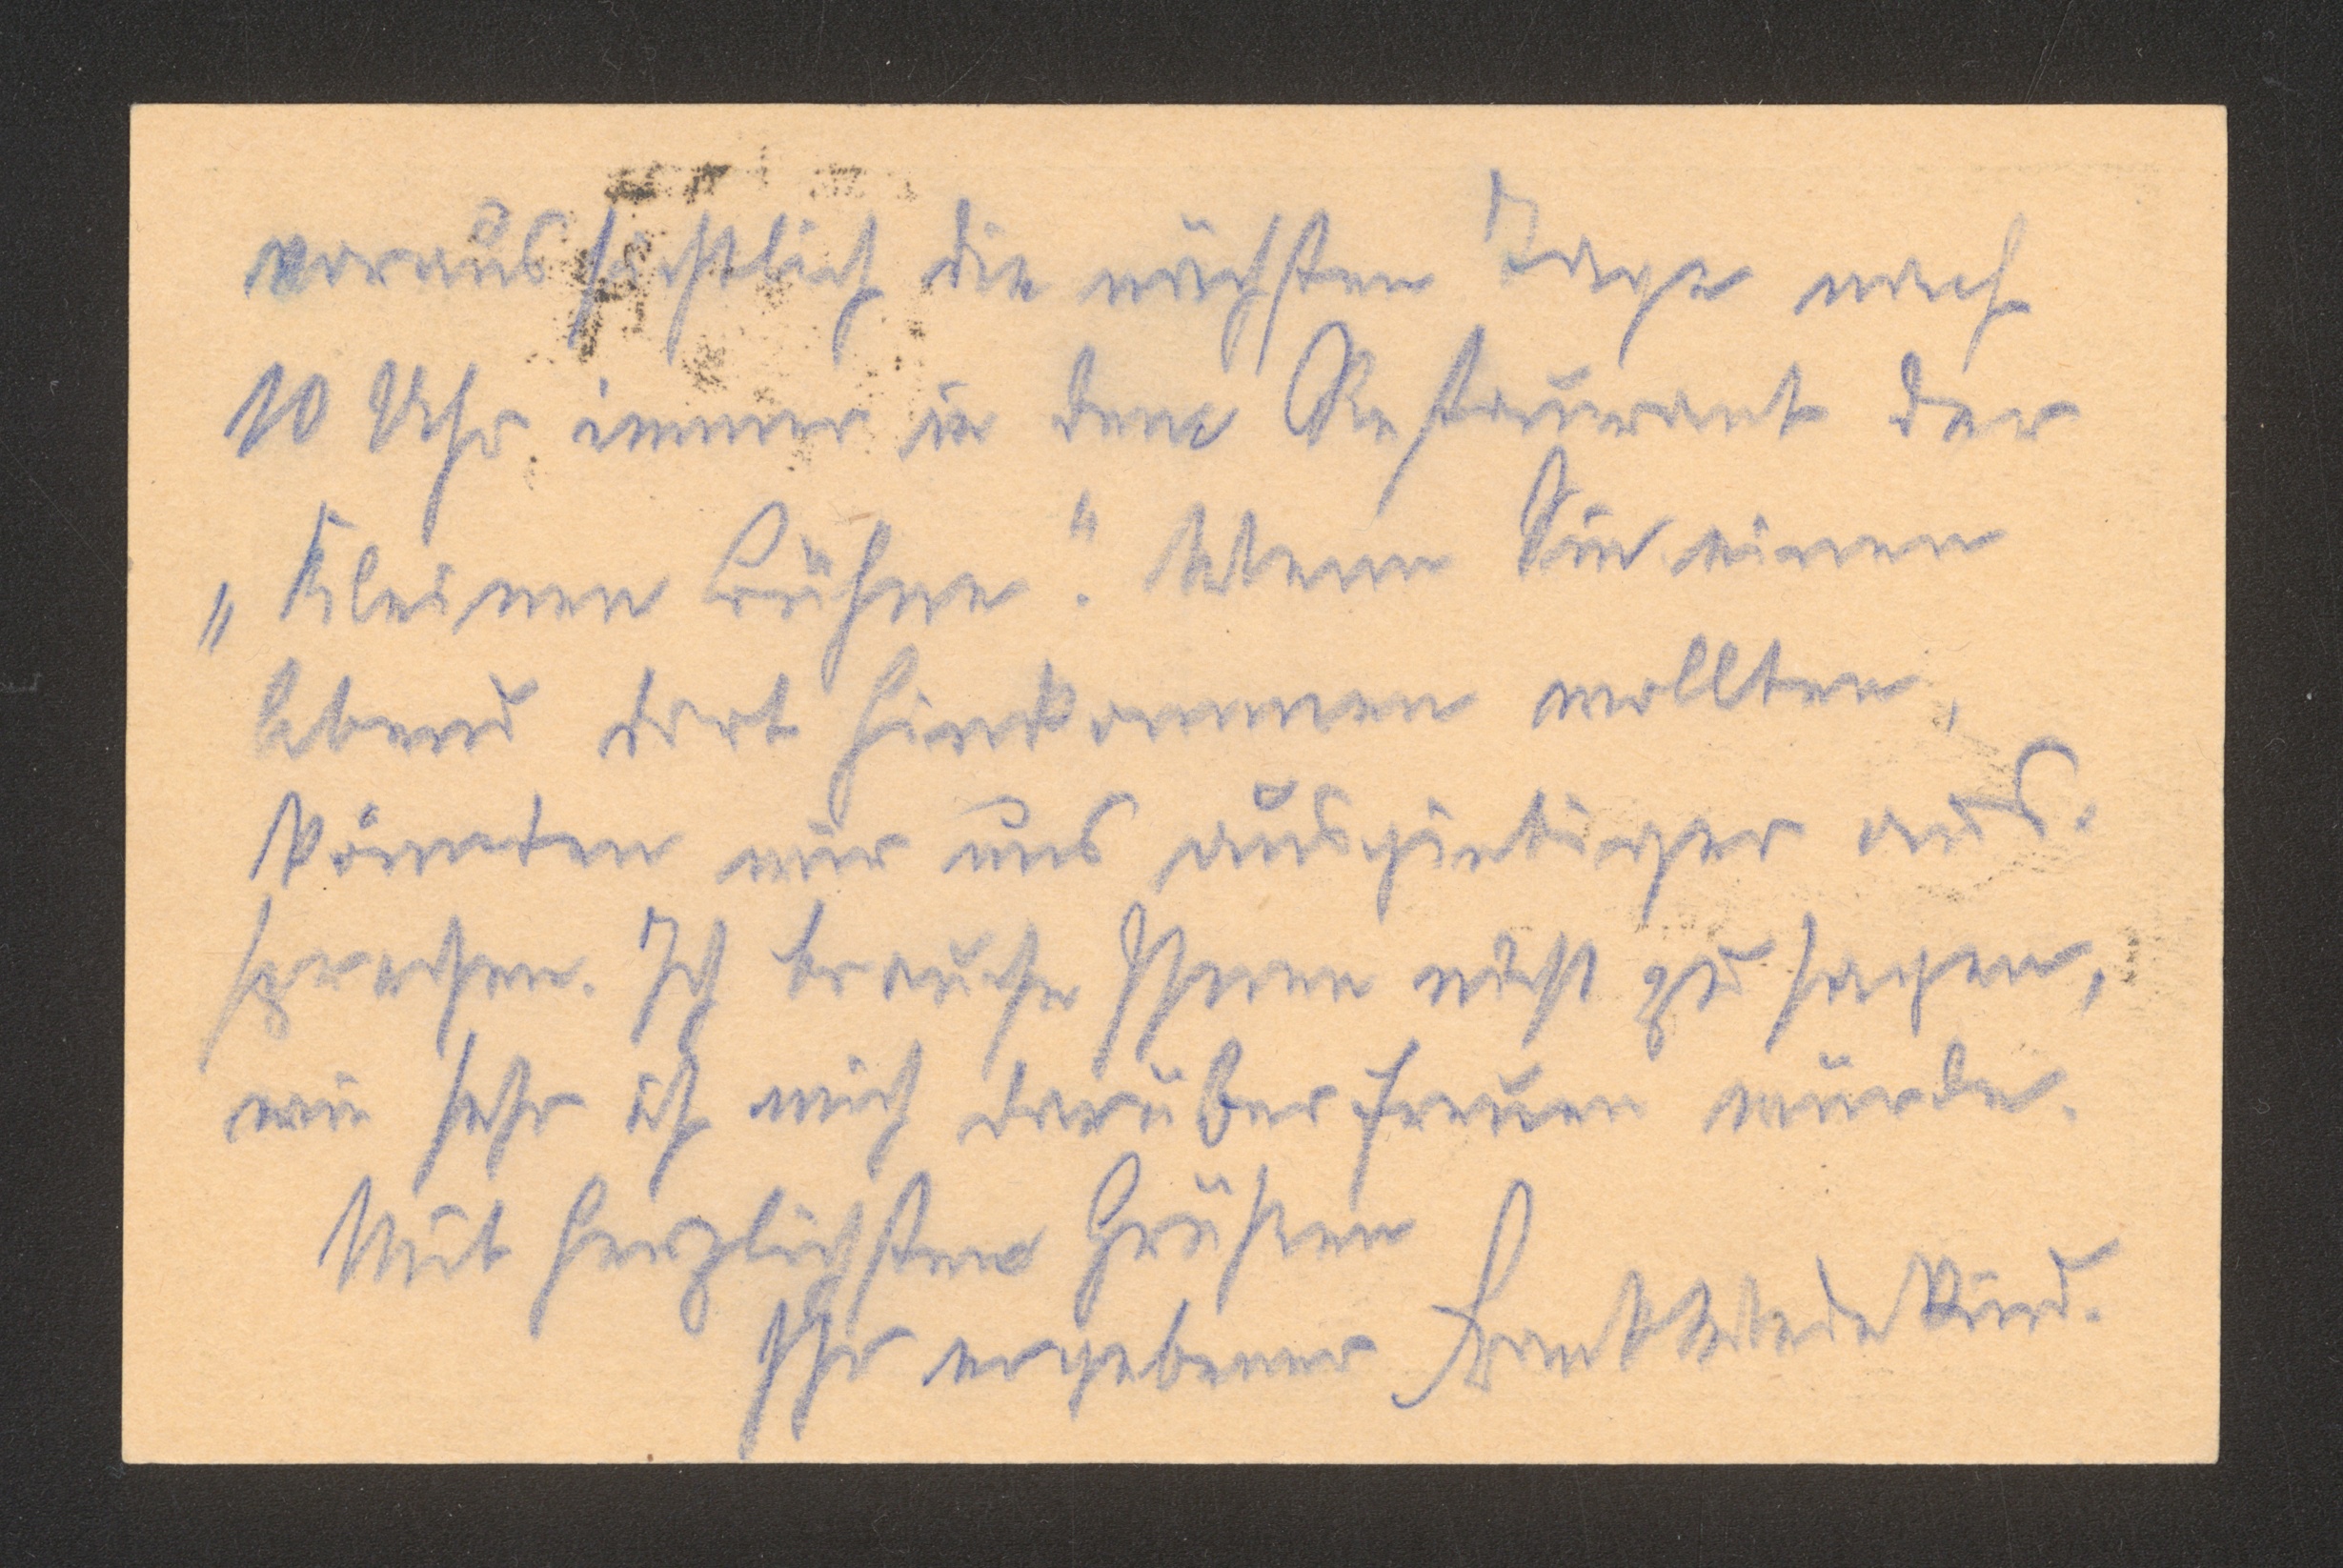 voraussichtlich die nächsten Tage nach
10 Uhr immer in dem Restaurant der
„Kleinen Bühne“. Wenn Sie einen
Abend dort hinkommen wollten,
könnten wir uns ausgiebiger aus-
sprechen. Ich brauche Ihnen nicht zu sagen,
wie sehr ich mich darüber freuen würde.
Mit herzlichsten Grüßen
Ihr ergebener Frank Wedekind.